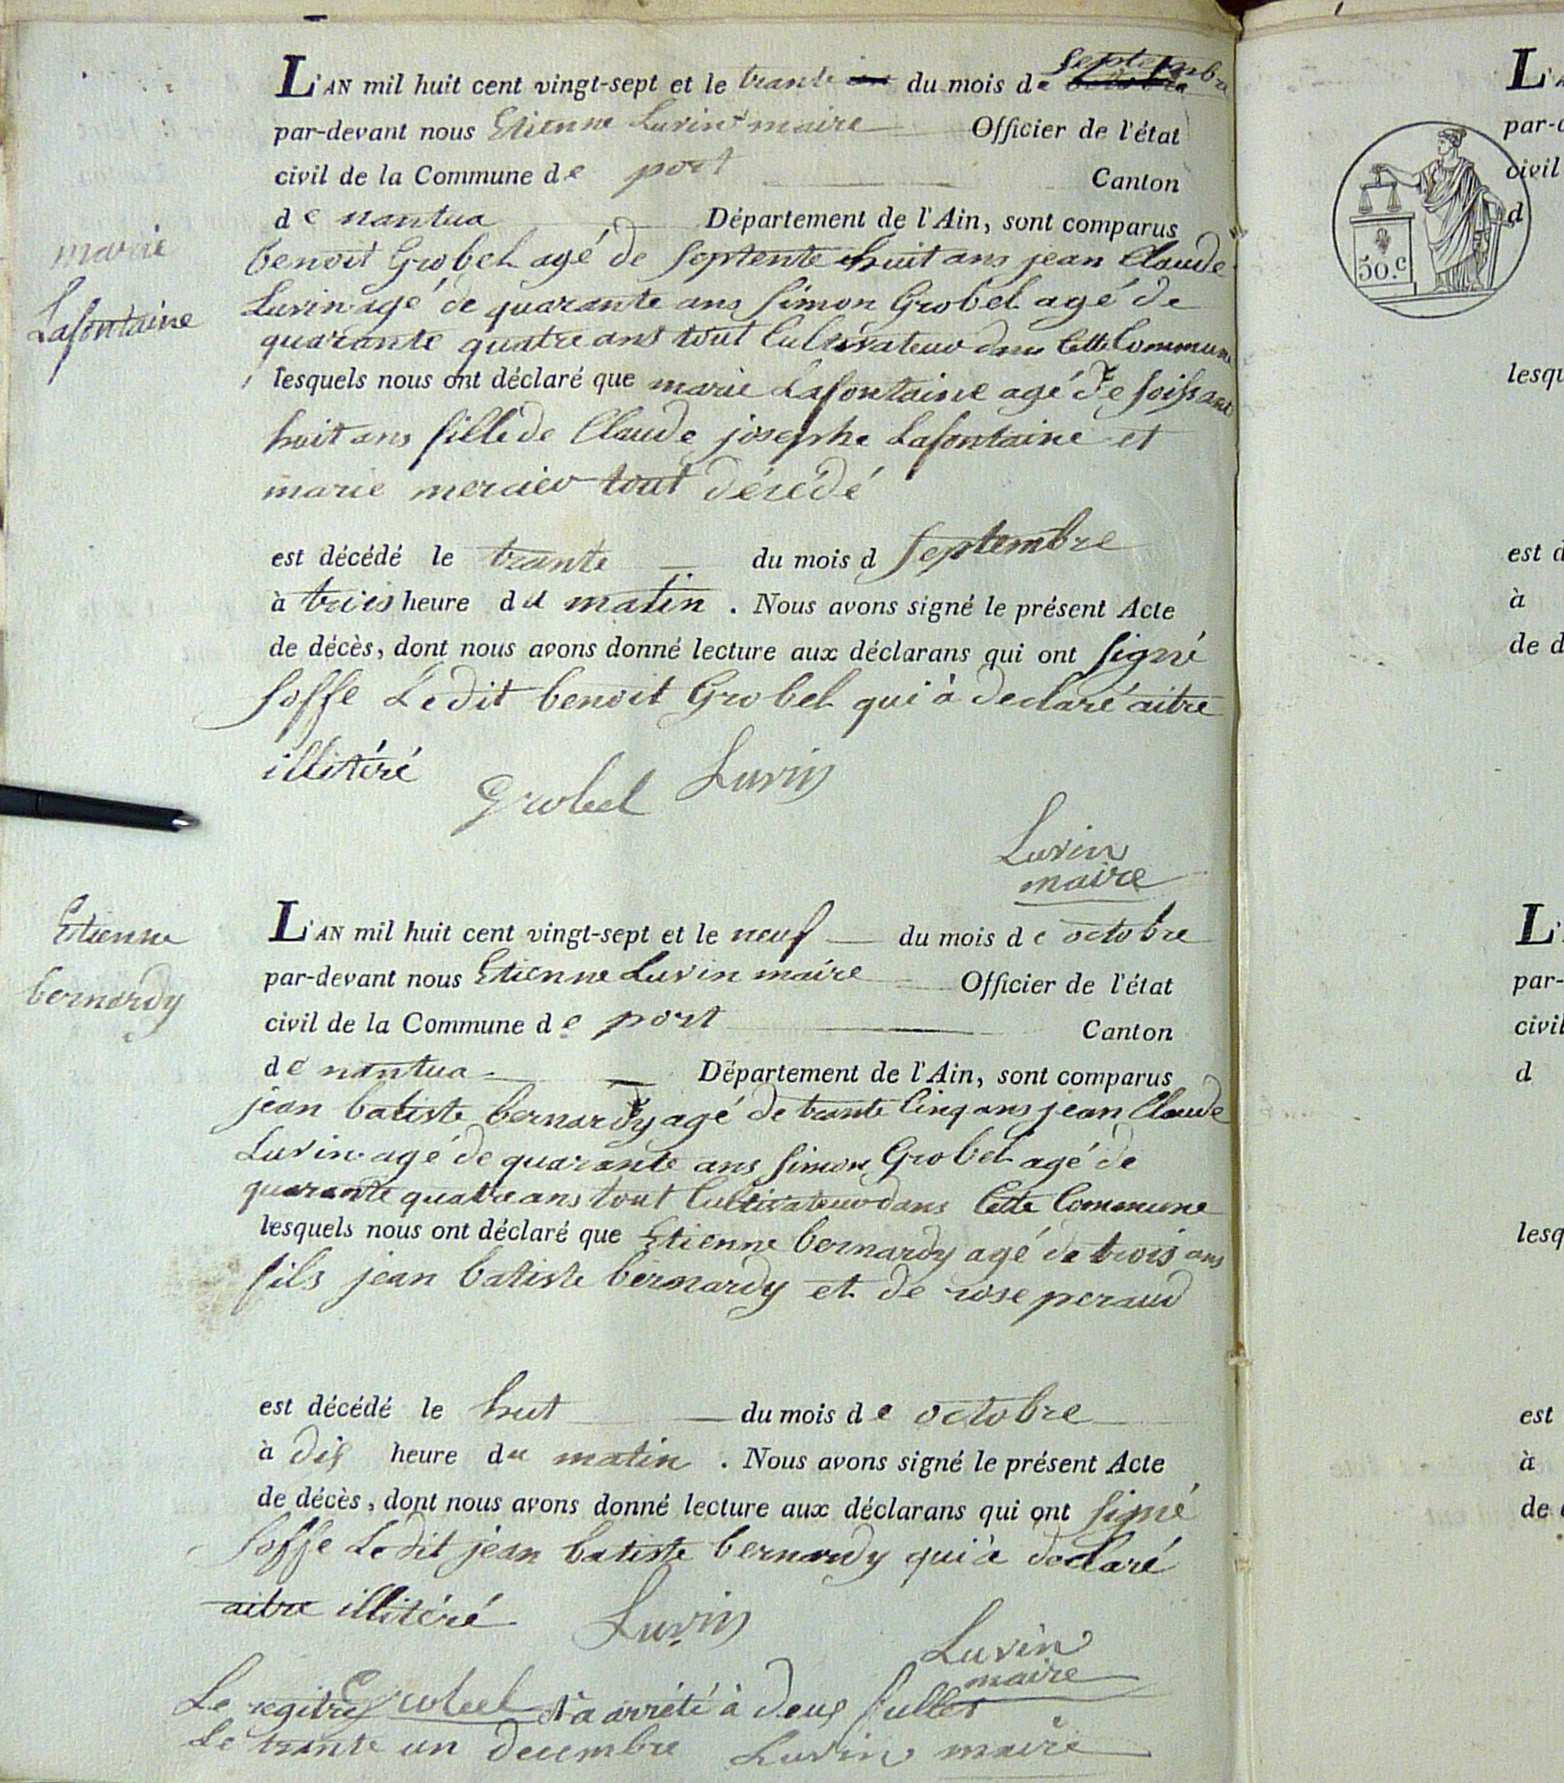 L'AN mil huit cent vingt-sept et le trante du mois de septembre
par-devant nous Etienne Luvin maire Officier de l'état
civil de la Commune de port Canton
de nantua Département de l'Ain, sont comparus
marie
Lafontaine
benoit Grobel agé de septente huit ans jean Claude
Luvin agé de quarante ans simon Grobel agé de
quarante quatre ans tout Cultivateur dans Cette Commune
lesquels nous ont déclaré que marie Lafontaine agé de soissante
huit ans fille de Claude josephe Lafontaine et
marie mercier tout décédé
est décédé le trante du mois d septembre
à trois heure du matin . Nous avons signé le présent Acte
de décès, dont nous avons donné lecture aux déclarans qui ont signé
soffe Ledit benoit Grobel qui à declaré aitre
illitéré
Grobel Luvin
Luvin
maire
Etienne
bernardy
L'AN mil huit cent vingt-sept et le neuf du mois de octobre
par-devant nous Etienne Luvin maire Officier de l'état
civil de la Commune de port Canton
de nantua Département de l'Ain, sont comparus
jean batiste bernardy agé de trante Cinq ans jean Claude
Luvin agé de quarante ans simon Grobel agé de
quarante quatre ans tout Cultivateur dans Cette Commune
lesquels nous ont déclaré que Etienne bernardy agé de trois ans
fils jean batiste bernardy et de rose peraud
est décédé le huit du mois de octobre
à dix heure du matin . Nous avons signé le présent Acte
de décès, dont nous avons donné lecture aux déclarans qui ont signé
soffe Ledit jean batiste bernardy qui à declaré
aitre illitéré Luvin
Luvin
maire
Grobel
Le regitre a arrété à deux fullet
Le trante un decembre Luvin maire
L'A
par-d
50.c
civil
d
lesqu
est d
à
de d
L'
par-
civil
d
lesq
est
à
de